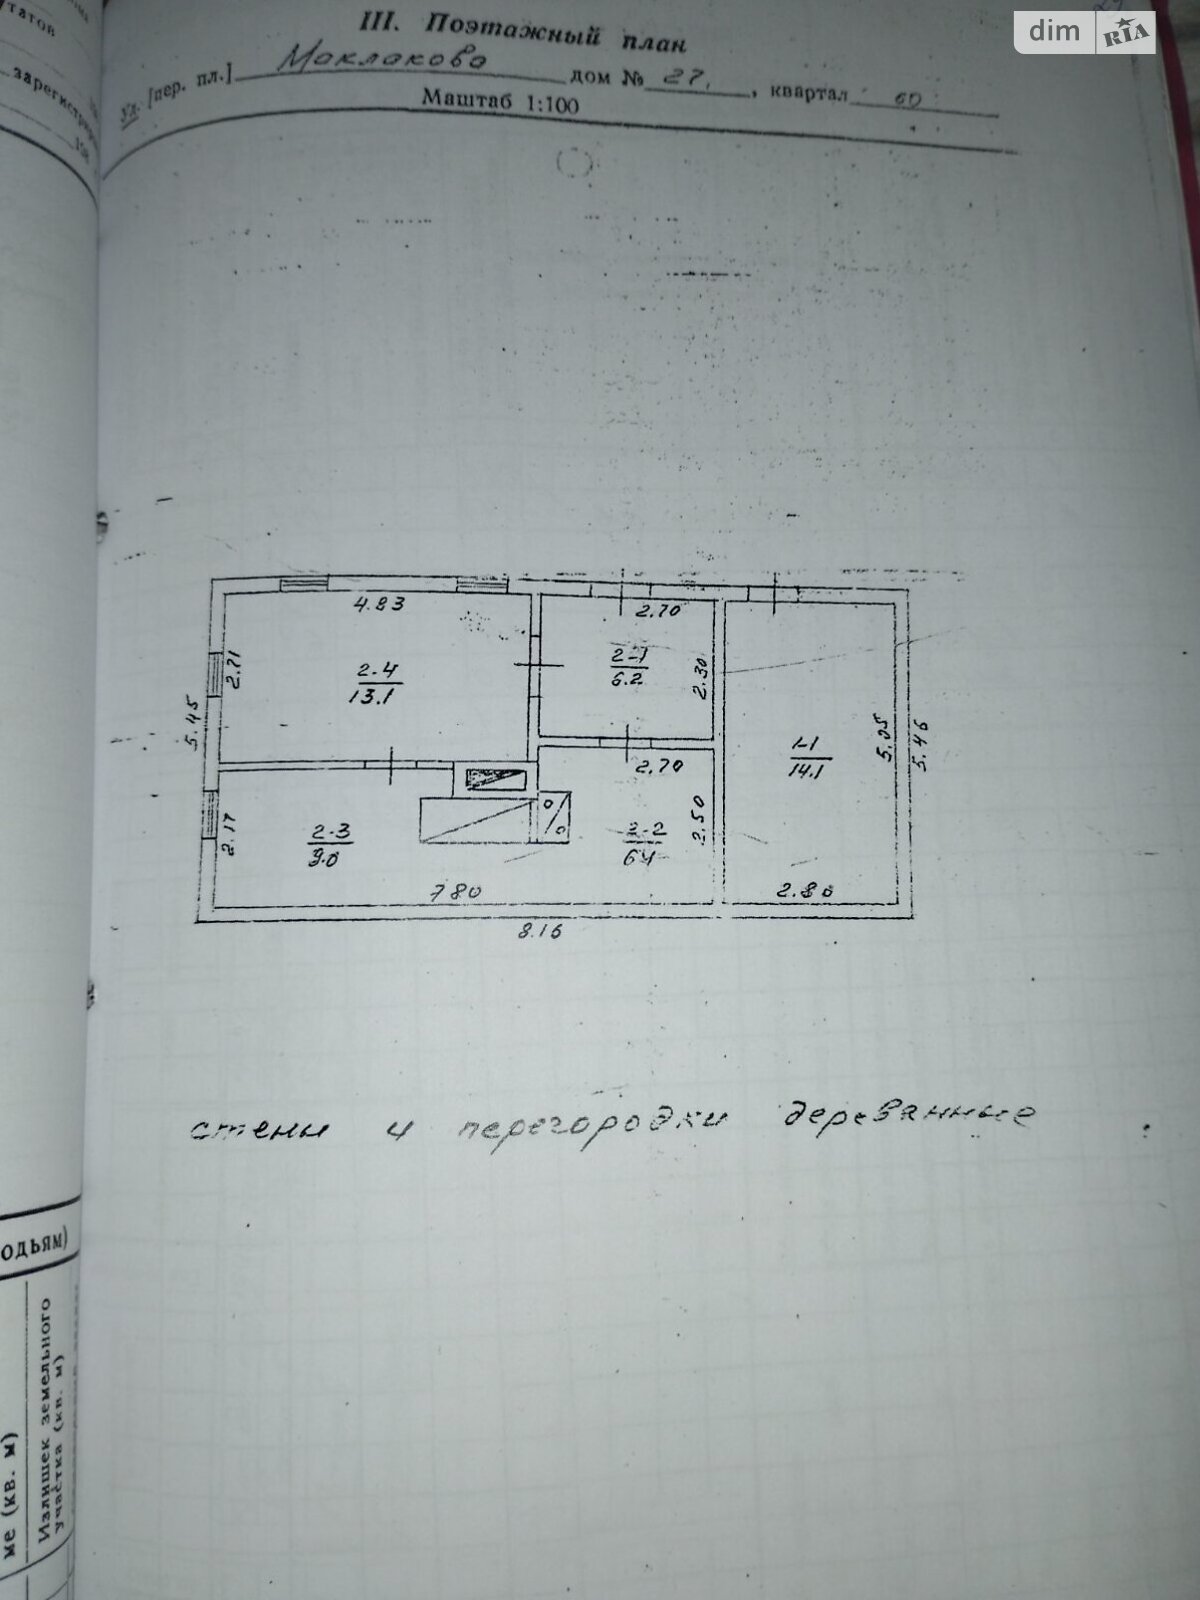 dim RIA
III. Поэтажный план
Ул. [пер. пл.] Маклакова дом № 27, , квартал 60
Маштаб 1:100
татов
зарегистриров
4.83
2.70
2.71
2-4
13.1
2-1
6.2
2.30
5.45
1-1
14.1
5.05
5.46
2.70
2.17
2-3
9.0
2-2
6.4
2.50
7.80
2.80
8.16
стены и перегородки деревянные
одьям)
ме (кв. м)
Излишек земельного
участка (кв. м)